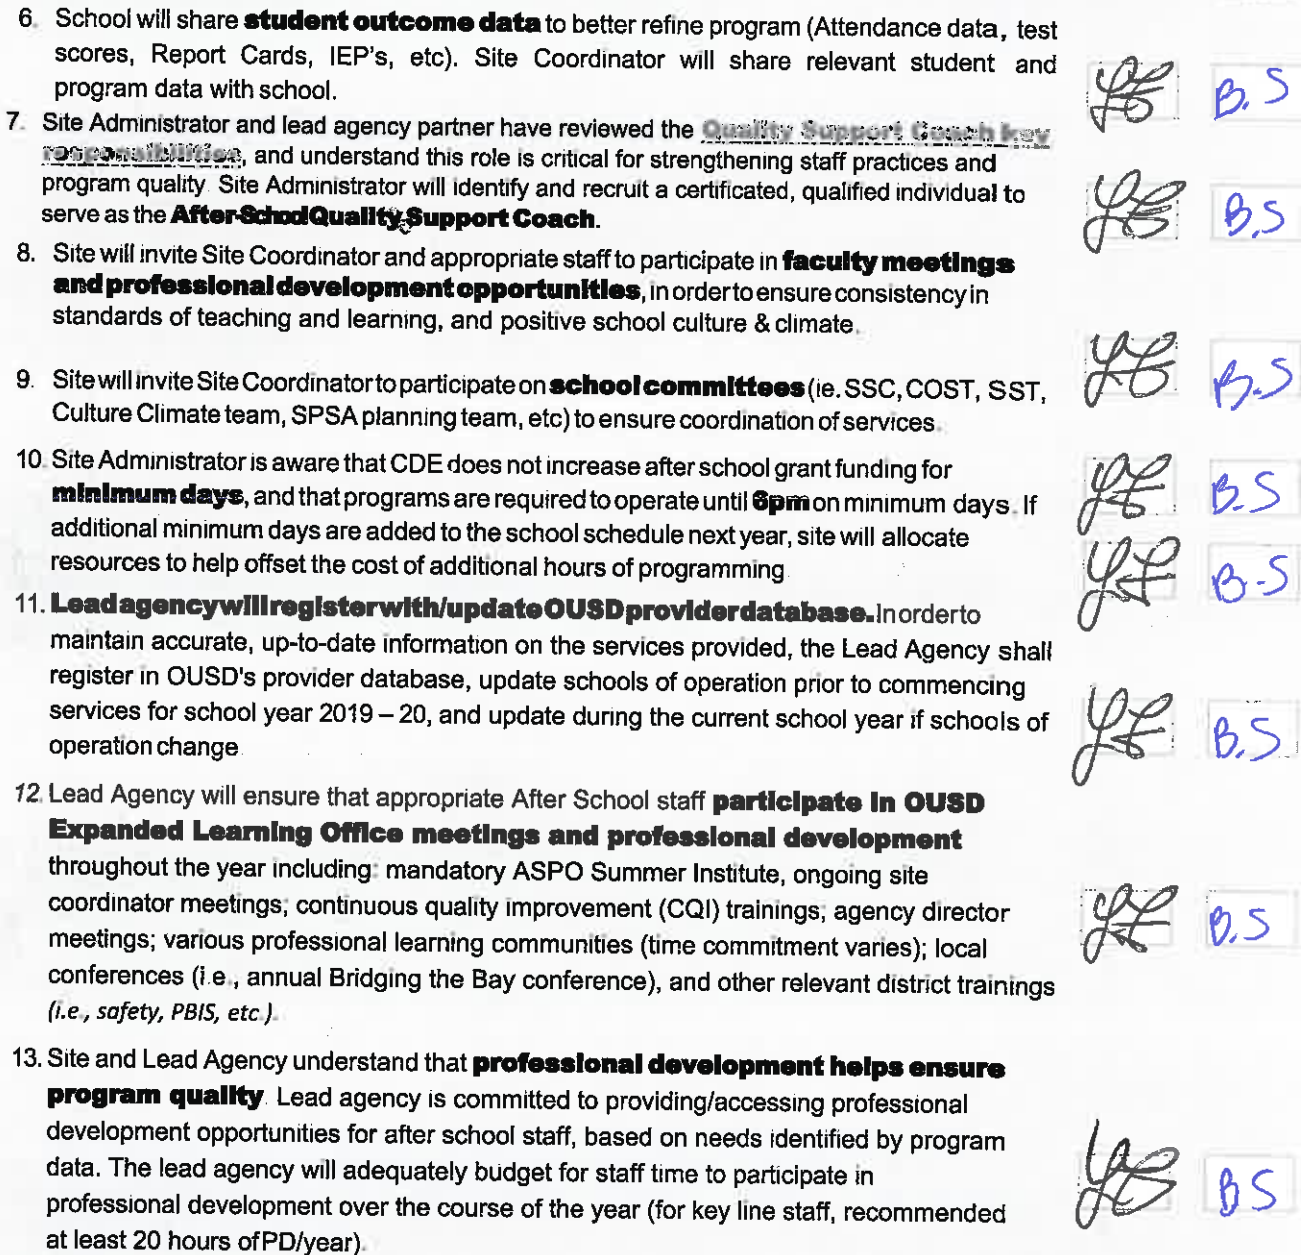 6. School will share student outcome data to better refine program (Attendance data, test
scores, Report Cards, IEP's, etc). Site Coordinator will share relevant student and
program data with school.
B. S
7. Site Administrator and lead agency partner have reviewed the Quality Support Coach key
responsibilities, and understand this role is critical for strengthening staff practices and
program quality. Site Administrator will identify and recruit a certificated, qualified individual to
serve as the After-School Quality Support Coach.
B.S
8. Site will invite Site Coordinator and appropriate staff to participate in faculty meetings
and professional development opportunities, in order to ensure consistency in
standards of teaching and learning, and positive school culture & climate.
B.S
9. Site will invite Site Coordinator to participate on school committees (ie. SSC, COST, SST,
Culture Climate team, SPSA planning team, etc) to ensure coordination of services.
B.S
10. Site Administrator is aware that CDE does not increase after school grant funding for
minimum days, and that programs are required to operate until 6pm on minimum days. If
additional minimum days are added to the school schedule next year, site will allocate
resources to help offset the cost of additional hours of programming
B-S
11. Lead agency will register with/update OUSD provider database. In order to
maintain accurate, up-to-date information on the services provided, the Lead Agency shall
register in OUSD's provider database, update schools of operation prior to commencing
services for school year 2019 – 20, and update during the current school year if schools of
operation change
B.S
12. Lead Agency will ensure that appropriate After School staff participate in OUSD
Expanded Learning Office meetings and professional development
throughout the year including: mandatory ASPO Summer Institute, ongoing site
coordinator meetings; continuous quality improvement (CQI) trainings; agency director
meetings; various professional learning communities (time commitment varies); local
conferences (i.e., annual Bridging the Bay conference), and other relevant district trainings
(i.e., safety, PBIS, etc.).
B.S
13. Site and Lead Agency understand that professional development helps ensure
program quality. Lead agency is committed to providing/accessing professional
development opportunities for after school staff, based on needs identified by program
data. The lead agency will adequately budget for staff time to participate in
professional development over the course of the year (for key line staff, recommended
at least 20 hours of PD/year).
B S